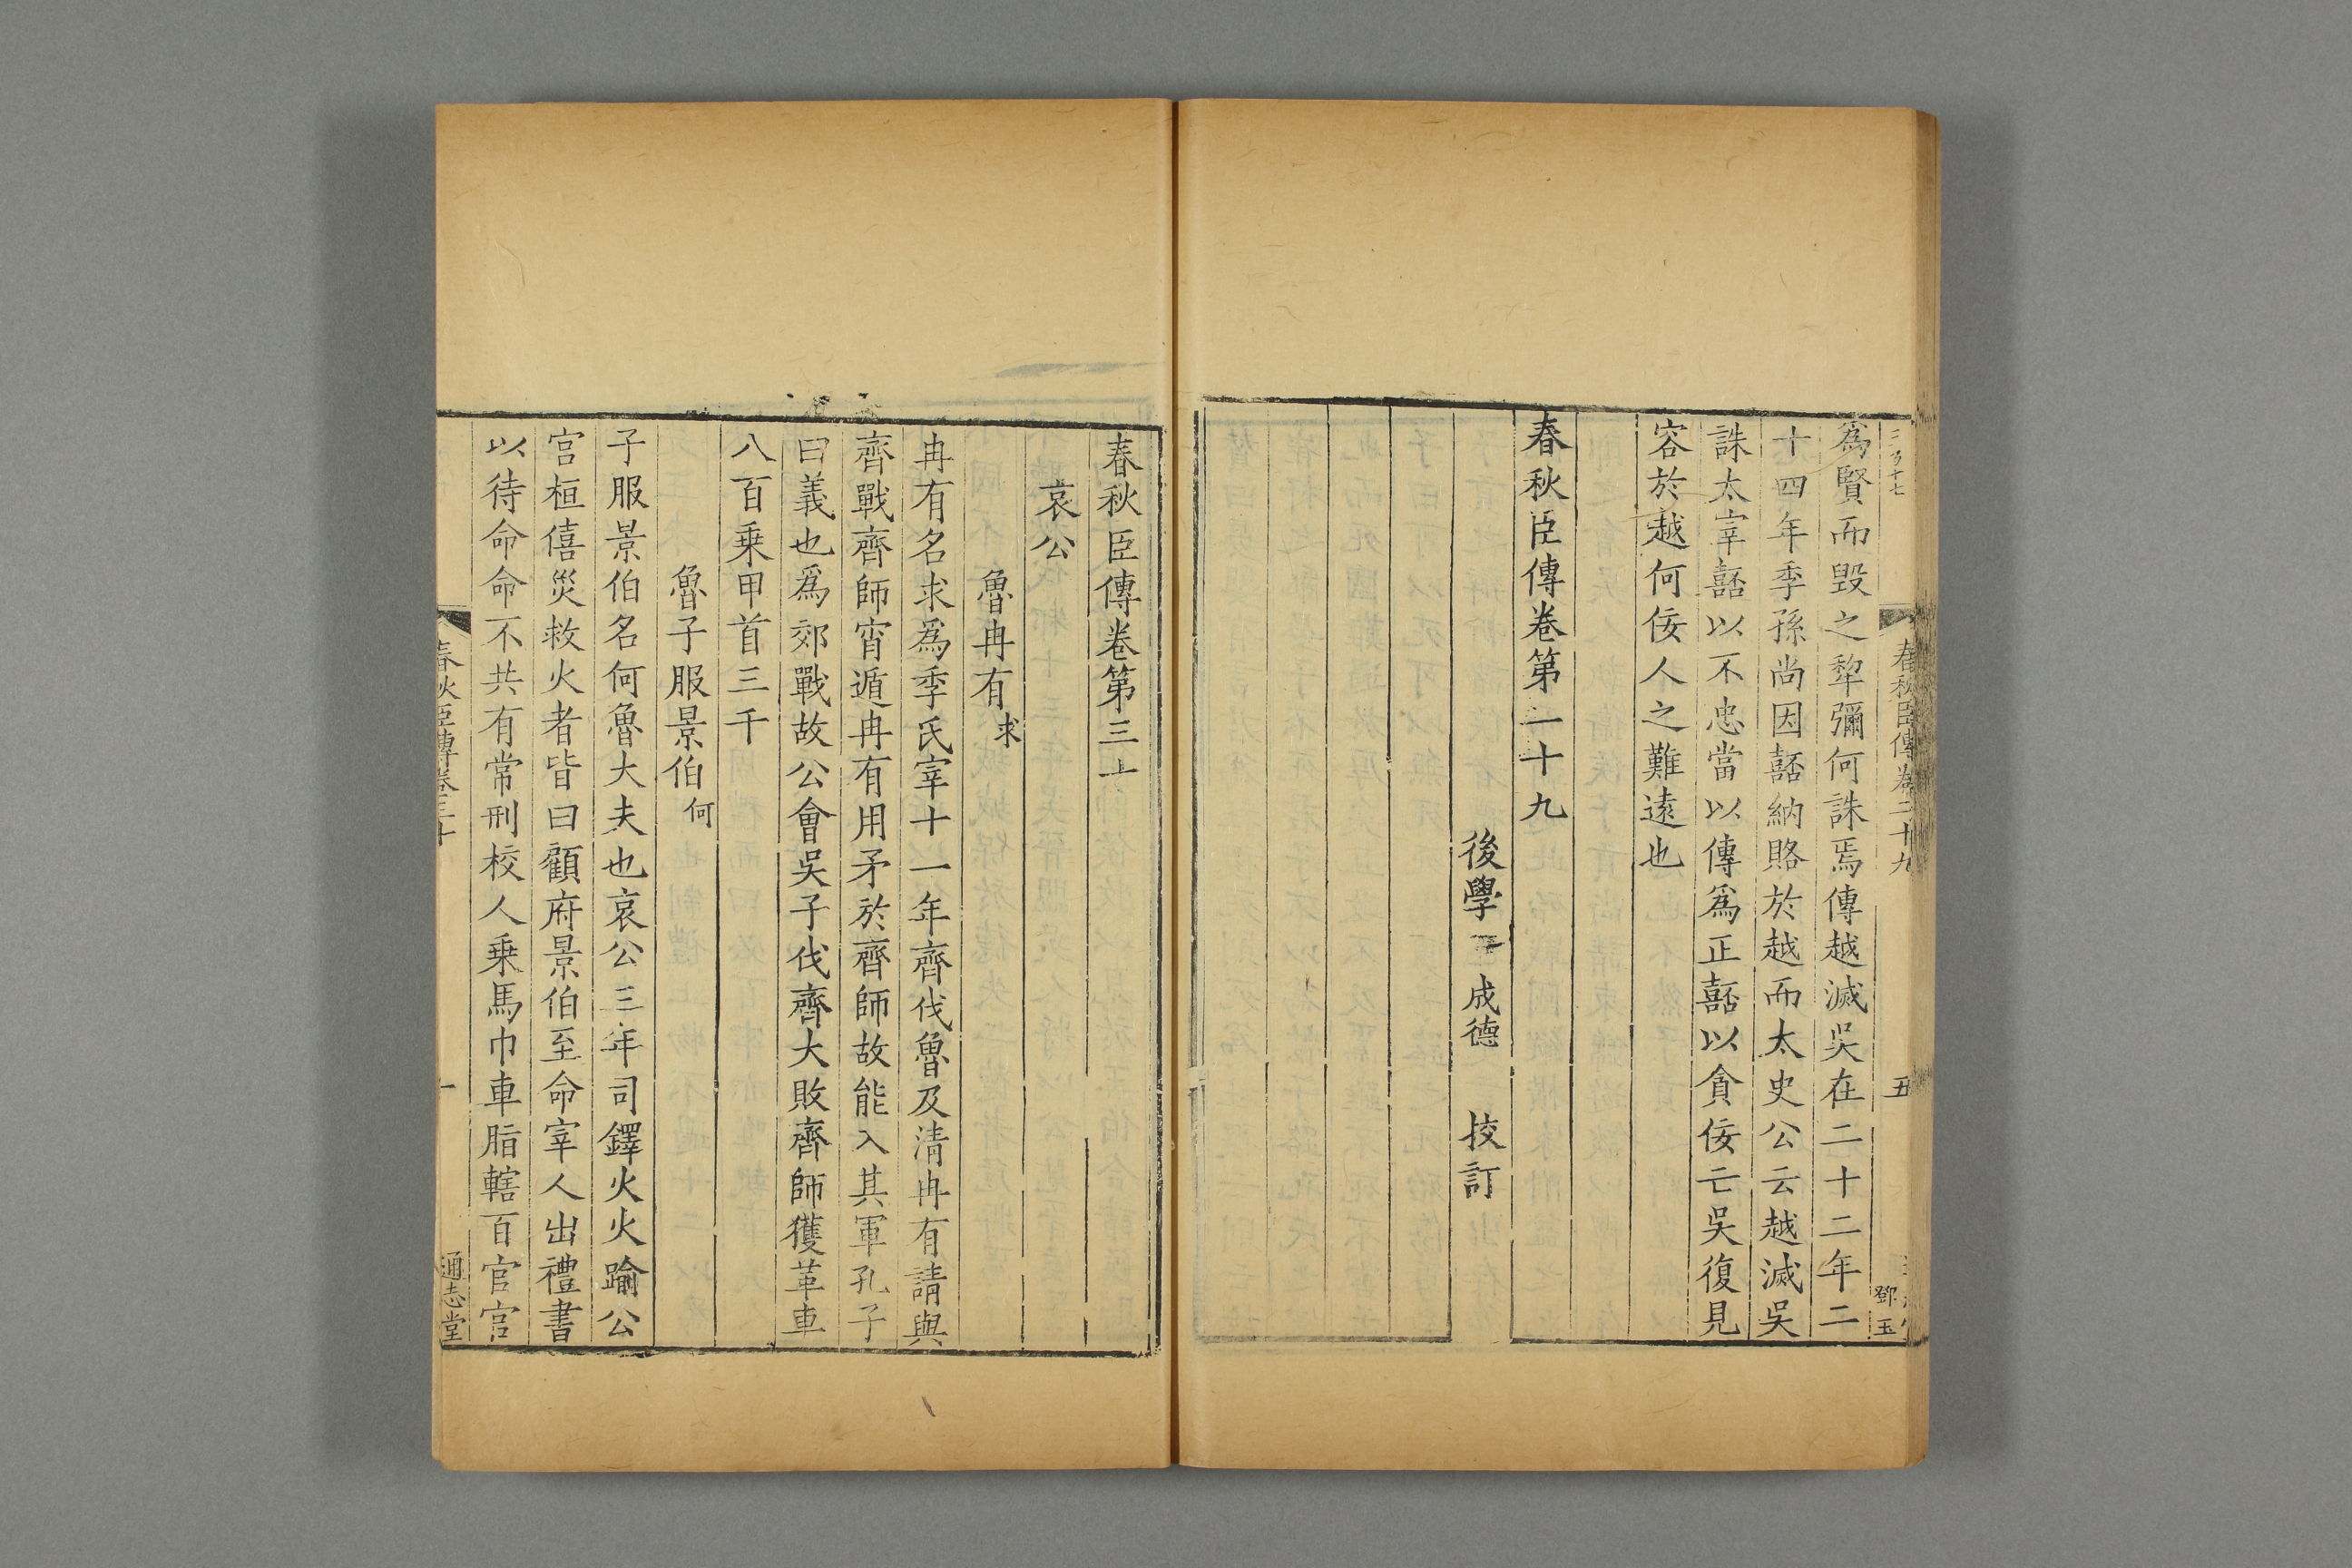 春秋臣傳卷二十九
五
鄧玉
為賢而毀之犂彌何誅焉傳越滅吳在二十二年二
十四年季孫尚因嚭納賂於越而太史公云越滅吳
誅太宰嚭以不忠當以傳為正嚭以貪佞亡吳復見
容於越何佞人之難遠也
春秋臣傳卷第二十九
後學 成德 挍訂
春秋臣傳卷第三十
哀公
魯冉有求
冉有名求為季氏宰十一年齊伐魯及清冉有請與
齊戰齊師宵遁冉有用矛於齊師故能入其軍孔子
曰義也為郊戰故公會吳子伐齊大敗齊師獲革車
八百乗甲首三千
魯子服景伯何
子服景伯名何魯大夫也哀公三年司鐸火火踰公
宮桓僖災救火者皆曰顧府景伯至命宰人出禮書
以待命命不共有常刑校人乗馬巾車脂轄百官官
春秋臣傳卷三十
一
通志堂